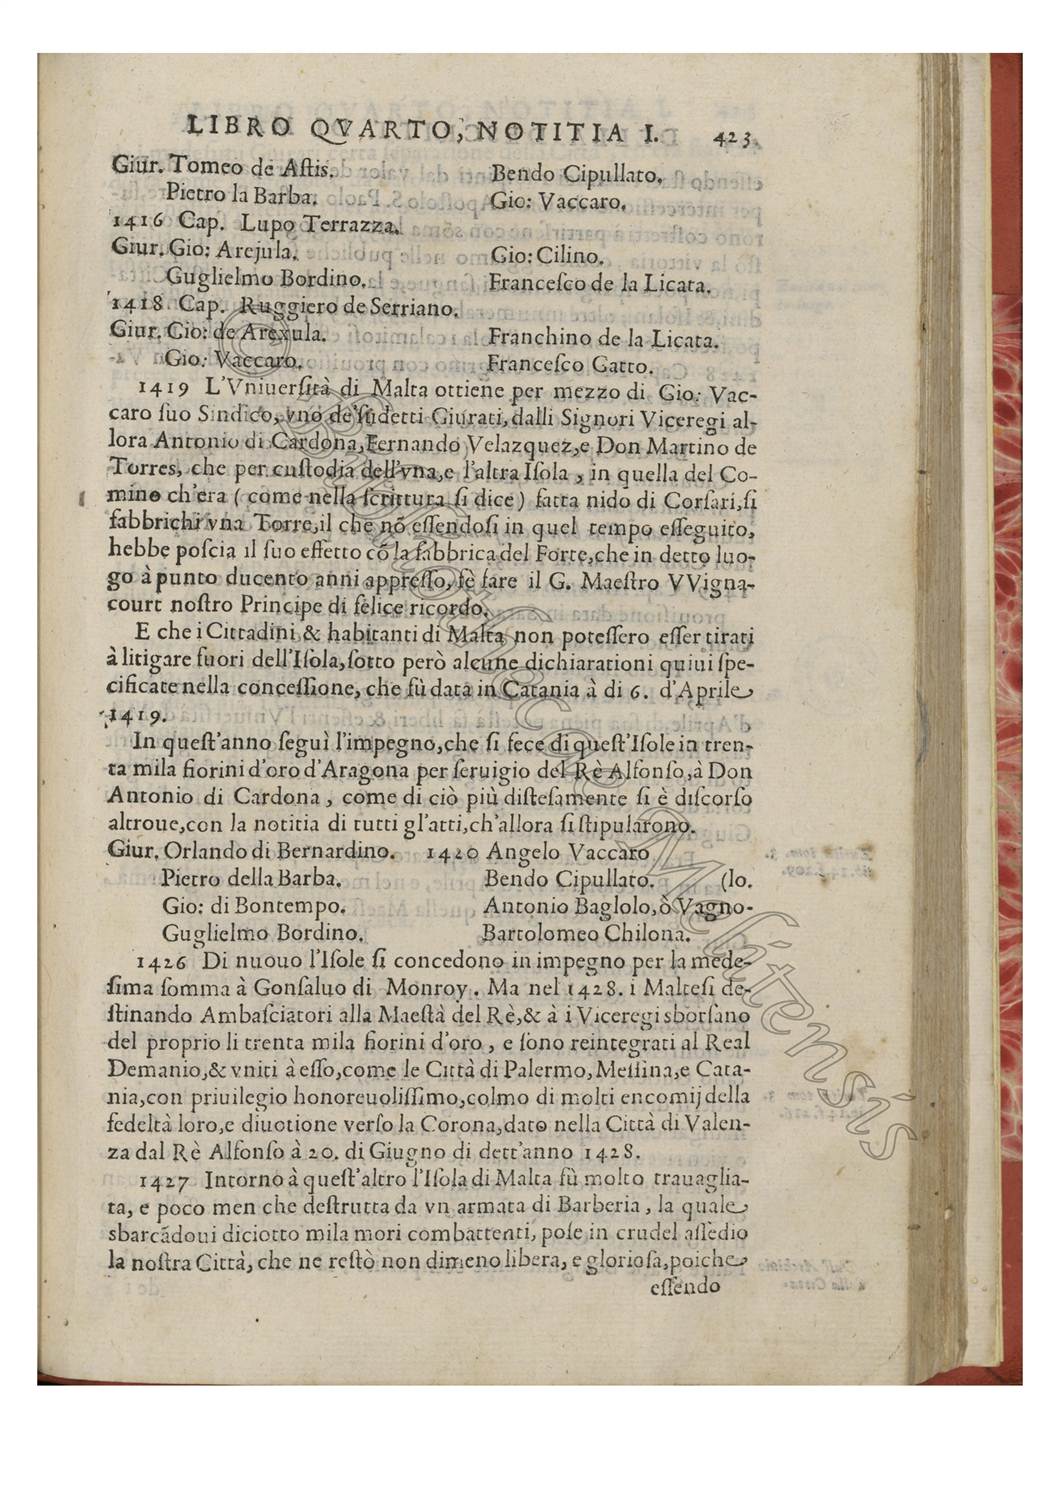 LIBRO QVARTO, NOTITIA I. 423.
Giur. Tomeo de Aſtis. Bendo Cipullato.
Pietro la Barba. Gio: Vaccaro.
1416 Cap. Lupo Terrazza.
Giur. Gio: Arejula. Gio: Cilino.
Guglielmo Bordino. Franceſco de la Licata.
1418 Cap. Ruggiero de Serriano.
Giur. Gio: de Arexula. Franchino de la Licata.
Gio: Vaccaro. Franceſco Gatto.
1419 L'Vniuerſità di Malta ottiene per mezzo di Gio: Vac-
caro ſuo Sindico, vno de'ſudetti Giurati, dalli Signori Viceregi al-
lora Antonio di Cardona, Fernando Velazquez, e Don Martino de
Torres, che per cuſtodia dell'vna, e l'altra Iſola, in quella del Co-
mino ch'era (come nella ſcrittura ſi dice) fatta nido di Corſari, ſi
fabbrichi vna Torre, il che nõ eſſendoſi in quel tempo eſſeguito,
hebbe poſcia il ſuo effetto cõ la fabbrica del Forte, che in detto luo-
go à punto ducento anni appreſſo, fè fare il G. Maeſtro VVigna-
court noſtro Principe di felice ricordo.
E che i Cittadini, & habitanti di Malta non poteſſero eſſer tirati
à litigare fuori dell'Iſola, ſotto però alcune dichiarationi quiui ſpe-
cificate nella conceſſione, che fù data in Catania à di 6. d'Aprile
1419.
In queſt'anno ſeguì l'impegno, che ſi fece di queſt'Iſole in tren-
ta mila fiorini d'oro d'Aragona per ſeruigio del Rè Alfonſo, à Don
Antonio di Cardona, come di ciò più diſteſamente ſi è diſcorſo
altroue, con la notitia di tutti gl'atti, ch'allora ſi ſtipularono.
Giur. Orlando di Bernardino. 1420 Angelo Vaccaro
Pietro della Barba. Bendo Cipullato. (lo.
Gio: di Bontempo. Antonio Baglolo, ò Vagno-
Guglielmo Bordino. Bartolomeo Chilona.
1426 Di nuouo l'Iſole ſi concedono in impegno per la mede-
ſima ſomma à Gonſaluo di Monroy. Ma nel 1428. i Malteſi de-
ſtinando Ambaſciatori alla Maeſtà del Rè, & à i Viceregi sborſano
del proprio li trenta mila fiorini d'oro, e ſono reintegrati al Real
Demanio, & vniti à eſſo, come le Città di Palermo, Meſſina, e Cata-
nia, con priuilegio honoreuoliſſimo, colmo di molti encomij della
fedeltà loro, e diuotione verſo la Corona, dato nella Città di Valen-
za dal Rè Alfonſo à 20. di Giugno di dett'anno 1428.
1427 Intorno à queſt'altro l'Iſola di Malta fù molto trauaglia-
ta, e poco men che deſtrutta da vn armata di Barberia, la quale
sbarcãdoui diciotto mila mori combattenti, poſe in crudel aſſedio
la noſtra Città, che ne reſtò non dimeno libera, e glorioſa, poiche
eſſendo